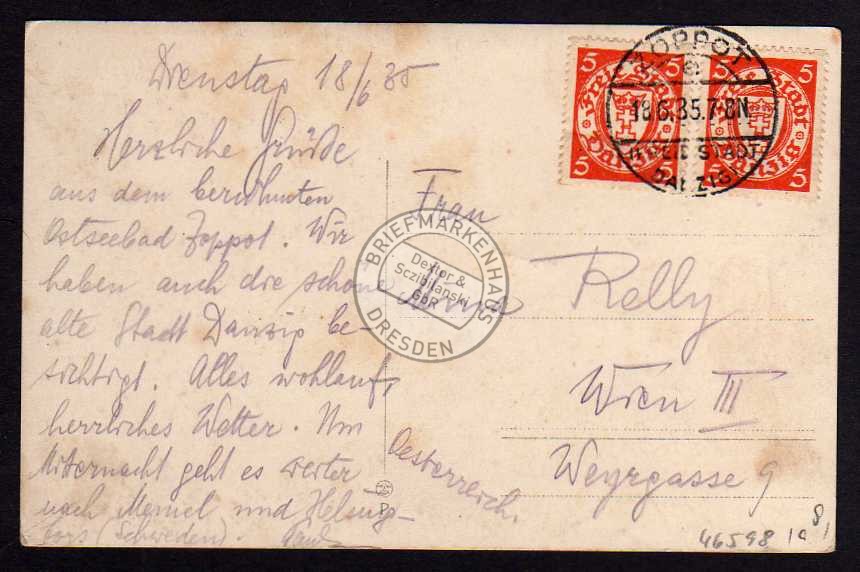 Dienstag 18/6 35
Herzliche Grüße
aus dem berühmten
Ostseebad Zoppot. Wir
haben auch die schöne
alte Stadt Danzig be-
sichtigt. Alles wohlauf,
herrliches Wetter. Um
Mitternacht geht es weiter
nach Memel und Helsing-
fors (Schweden).
Frau
Relly
Wien III
Weyrgasse 9
Oesterreich.
5 5
Freie Stadt
Danzig
5 5
5 5
Freie Stadt
Danzig
5 5
ZOPPOT
e
18.6.35.7-8N
FREIE STADT
DANZIG
BRIEFMARKENHAUS
Dexler &
Sczibilanski
GbR
DRESDEN
46598